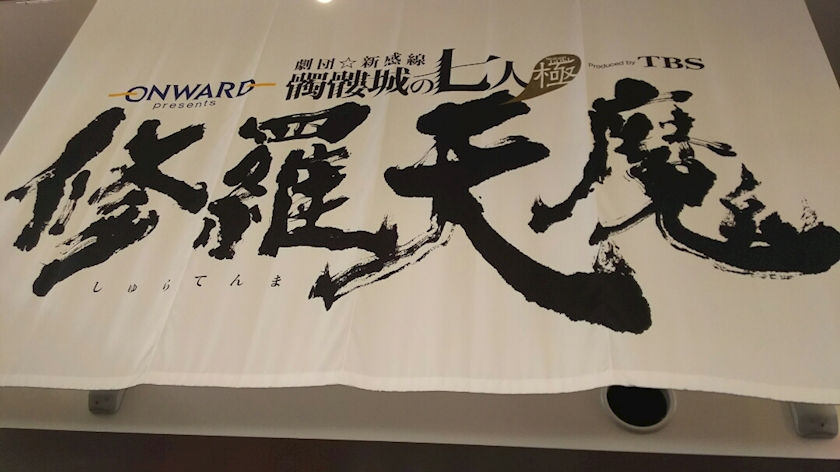 ONWARD
presents
劇団☆新感線
髑髏城の七人 極
Produced by TBS
修羅天魔
しゅらてんま